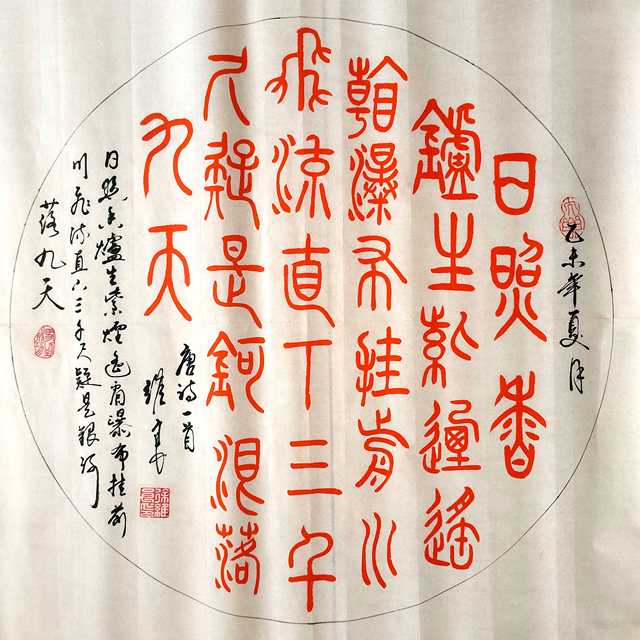 乙未年夏月
日照香
鑪生紫煙遙
看瀑布挂前川
飛流直下三千
尺疑是銀河落
九天
唐詩一首
日照香爐生紫煙遙看瀑布挂前
川飛流直下三千尺疑是銀河
落九天